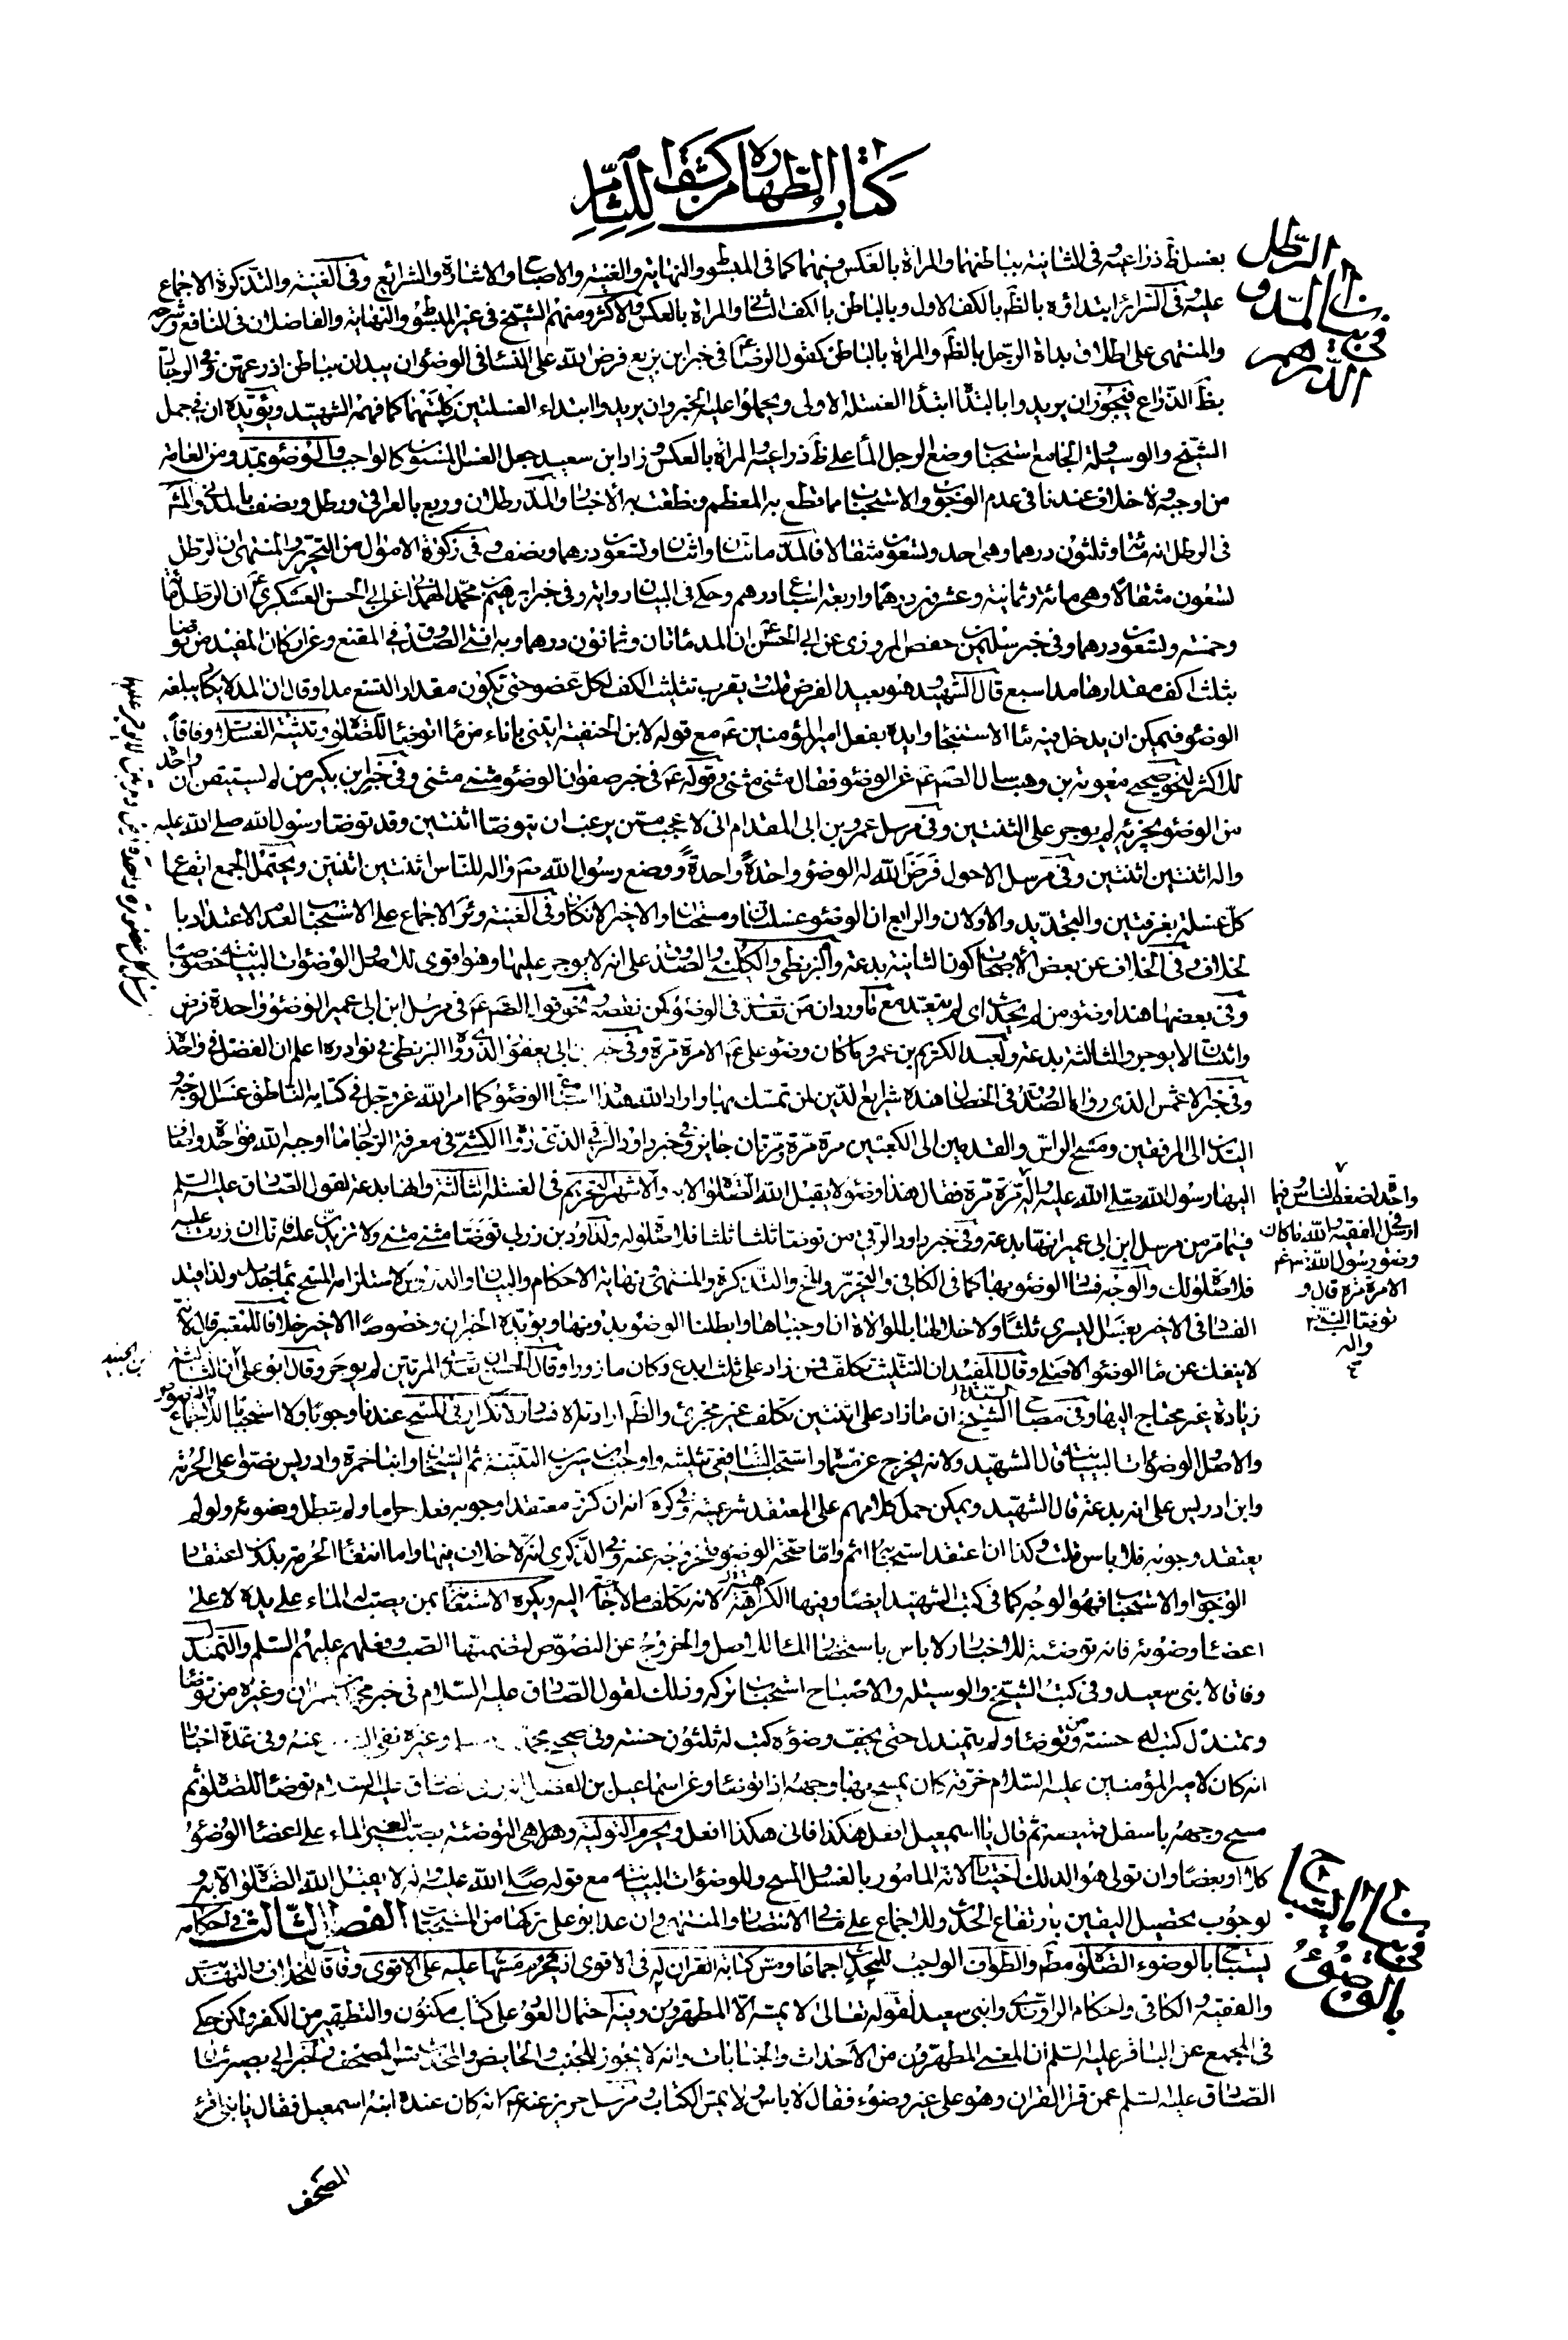 كتاب الطهارة من كشف اللثام
في بيان الرطل والمد والدرهم
بغسل ظ ذراعيه في الثانية بباطنهما والمراة بالعكس فيهما كما في المبسوط والنهاية والغنية والاصباح والاشارة والشرائع وفي الغنية والتذكرة الاجماع
عليه في السرائر ابتداؤه بالظهر بالكف الاول وبالباطن بالكف الثاني والمراة بالعكس والاكثر ومنهم الشيخ في غير المبسوط والنهاية والفاضلان في النافع وشرحه
والمنتهى على اطلاق بداة الرجل بالظهر والمراة بالباطن كقول الرضا ع في خبر ابن بزيع فرض الله على النساء في الوضوء ان يبدان بباطن اذرعهن وفي الرجال
بظ الذراع فيجوز ان يريدوا بالبداة ابتدا الغسلة الاولى ويحملوا عليه الخبر وان يريدوا ابتداء الغسلتين كلتيهما كما فهمه الشهيد ويؤيده ان في جمل
الشيخ والوسيلة والجامع استحباب وضع الرجل الماء على ظ ذراعيه والمراة بالعكس وزاد ابن سعيد جعل الغسل المسنون كالواجب والوضوء بمد ومن العامة
من اوجبه لا خلاف عندنا في عدم الوجوب والاستحباب مما قطع به المعظم ونطقت به الاخبار والمد رطلان وربع بالعراقي ورطل ونصف بالمدني والمشهور
في الرطل انه مائة وثلثون درهما وهي احد وتسعون مثقالا فالمد مائتان واثنان وتسعون درهما ونصف وفي زكوة الاموال من التحرير والمنتهى ان الرطل
تسعون مثقالا وهي مائة وثمانية وعشرون درهما واربعة اسباع درهم وحكي في البيان رواية وفي خبر ابراهيم بن محمد الهمداني عن ابي الحسن العسكري ع ان الرطل مائة
وخمسة وتسعون درهما وفي خبر سليمان بن حفص المروزي عن ابي الحسن ع ان المد مائتان وثمانون درهما وبه افتى الصدوق في المقنع وعن اركان المفيد من توضا
بثلث اكف مقدارها مد اسبغ قال الشهيد هو بعيد الفرض قلت يقرب تثليث الكف لكل عضو حتى يكون مقدار التسع مدا وقال ان المد لا يكاد يبلغه
الوضوء فيمكن ان يدخل فيه ماء الاستنجاء وايده بفعل امير المؤمنين ع مع قوله لابن الحنفية ايتني باناء من ماء اتوضا للصلوة وتثنية الغسلات وفاقا
للاكثر لنحو صحيح معوية بن وهب سال الصم ع عن الوضوء فقال مثنى مثنى وقوله ع في خبر صفوان الوضوء مثنى مثنى وفي خبر ابن بكير من لم يستيقن ان واحدة
من الوضوء يجزيه لم يوجر على الثنتين وفي مرسل عمرو بن ابي المقدام اني لاعجب ممن يرغب ان يتوضا اثنتين اثنتين وقد توضا رسول الله صلى الله عليه
واله اثنتين اثنتين وفي مرسل الاحول فرض الله الوضوء واحدة واحدة ووضع رسول الله ص واله للناس اثنتين اثنتين ويحتمل الجمع ايقاع
كل غسلة بغرفتين والتجديد والاولان والرابع ان الوضوء غسلتان ومسحتان والاخير الانكار وفي الغنية وئر الاجماع على الاستحباب لعدم الاعتداد با
لخلاف وفي الخلاف عن بعض الاصحاب كون الثانية بدعة والبزنطي والكليني والصدوق على انه لا يوجر عليها وهو اقوى للاصل والوضوءات البيانية خصوصا
وفي بعضها هذا وضوء من لم يحدث اي لم يتعد مع ما ورد ان من تعدى في الوضوء كمن نقصه ونحو قول الصم ع في مرسل ابن ابي عمير الوضوء واحدة فرض
واثنتان لا يوجر والثالثة بدعة ولعبد الكريم بن عمرو ما كان وضوء علي ع الا مرة مرة وفي خبر ابن ابي يعفور الذي رواه البزنطي في نوادره اعلم ان الفضل في واحدة
وفي خبر الاعمش الذي رواه الصدوق في الخصال هذه شرايع الدين لمن تمسك بها واراد الله هداه اسباغ الوضوء كما امر الله عز وجل في كتابه الناطق غسل الوجه و
اليدين الى المرفقين ومسح الراس والقدمين الى الكعبين مرة مرة ومرتان جايز وفي خبر داود الرقي الذي رواه الكشي في معرفة الرجال ما اوجبه الله فواحدة واضاف
اليها رسول الله صلى الله عليه واله مرة مرة فقال هذا وضوء لا يقبل الله الصلوة الا به والاشهر التحريم في الغسلة الثالثة وانها بدعة لقول الصادق عليه السلم
فيما مر من مرسل ابن ابي عمير انها بدعة وفي خبر داود الرقي من توضا ثلثا ثلثا فلا صلوة له ولداود بن زربي توضا مثنى مثنى ولا تزيدن عليه فانك ان زدت عليه
فلا صلوة لك والوجه فساد الوضوء بها كما في الكافي والتحرير والمخ والتذكرة والمنتهى ونهاية الاحكام والبيان والدروس لاستلزامه المسح بماء جديد ولذا قيد
الفساد في الاخير بغسل اليسرى ثلثا ولاخلالها بالموالاة ان اوجبناها وابطلنا الوضوء بدونها ويؤيده الخبران وخصوصا الاخير خلافا للمعتبر قال لانه
لا ينفك عن ماء الوضوء الاصلي وقال المفيد ان التثليث تكلف فمن زاد على ثلث ابدع وكان مازورا وقال الحسن ان تعدى المرتين لم يوجر وقال ابو علي ان الثالثة
زيادة غير محتاج اليها وفي مصباح الشيخ ان ما زاد على اثنتين تكلف غير مجزئ والظ ارادته فساده ولا تكرار في المسح عندنا وجوبا ولا استحبابا للاجماع
والاصل والوضوءات البيانية قال الشهيد ولانه يخرج عن مسماه واستحب الشافعي تثليثه واوجب ابن سيرين التثنية ثم الشيخان وابنا حمزة وادريس نصوا على الحرمة
وابن ادريس على انه بدعة قال الشهيد ويمكن حمل كلامهم على المعتقد شرعيته وفي كره انه ان كرره معتقدا وجوبه فعل حراما ولم يبطل وضوئه ولو لم
يعتقد وجوبه فلا باس قلت وكذا ان اعتقد استحبابه اثم واما صحة الوضوء فلخروجه عنه وفي الذكرى انه لا خلاف فيها واما انتفاء الحرمة بدون اعتقاد
الوجوب او الاستحباب فهو الوجه كما في كتب الشهيد ايضا وفيها الكراهة لانه تكلف ما لا حاجة اليه ويكره الاستعانة بمن يصب الماء على يده لا على
اعضاء وضوئه فانه توضئة للاخبار ولا باس باستحضار الماء للاصل والخروج عن النصوص لتضمنها الصب وفعلهم عليهم السلم والتمندل
وفاقا لابني سعيد وفي كتب الشيخ والوسيلة والاصباح استحباب تركه وذلك لقول الصادق عليه السلام في خبر محمد بن حمران وغيره من توضا
وتمندل كتب له حسنة ومن توضا ولم يتمندل حتى يجف وضوءه كتب له ثلثون حسنة وفي صحيح محمد بن مسلم وغيره نفي الباس عنه وفي عدة اخبار
انه كان لامير المؤمنين عليه السلام خرقة كان يمسح بها وجهه اذا توضا وعن اسماعيل بن الفضل انه راى الصادق عليه السلام توضا للصلوة ثم
مسح وجهه باسفل قميصه ثم قال يا اسمعيل افعل هكذا فاني هكذا افعل ويحرم التولية وهل هي التوضئة بصب الغير الماء على اعضاء الوضوء
كلا او بعضا وان تولى هو الدلك احتياطا لانه المامور بالغسل والمسح وللوضوءات البيانية مع قوله صلى الله عليه واله لا يقبل الله الصلوة الا به و
لوجوب تحصيل اليقين بارتفاع الحدث وللاجماع على ما في الانتصار والمنتهى وان عد ابو علي تركها من المستحبات الفصل الثالث في احكامه
يستباح بالوضوء الصلوة مطم والطواف الواجب للمحدث اجماعا ومس كتابة القران له في الاقوى اذ يحرم مسها عليه على الاقوى وفاقا للخلاف والتهذيب
والفقيه والكافي واحكام الراوندي وابني سعيد لقوله تعالى لا يمسه الا المطهرون وفيه احتمال العود على كتاب مكنون والتطهير من الكفر ولكن حكي
في المجمع عن الباقر عليه السلم ان المعنى المطهرون من الاحداث والجنابات وانه لا يجوز للجنب والحايض والمحدث مس المصحف ولخبر ابي بصير سال
الصادق عليه السلم عمن قرا القران وهو على غير وضوء فقال لا باس ولا يمس الكتاب ومرسل حريز عنه ع انه كان عنده ابنه اسمعيل فقال يا بني اقرء
المصحف
واحدة لضعف الناس فيما
ارسل في الفقيه والله ما كان
وضوء رسول الله ص
الا مرة مرة قال و
توضا النبي ص
واله
ابن الجنيد
في بيان ما يستباح بالوضوء